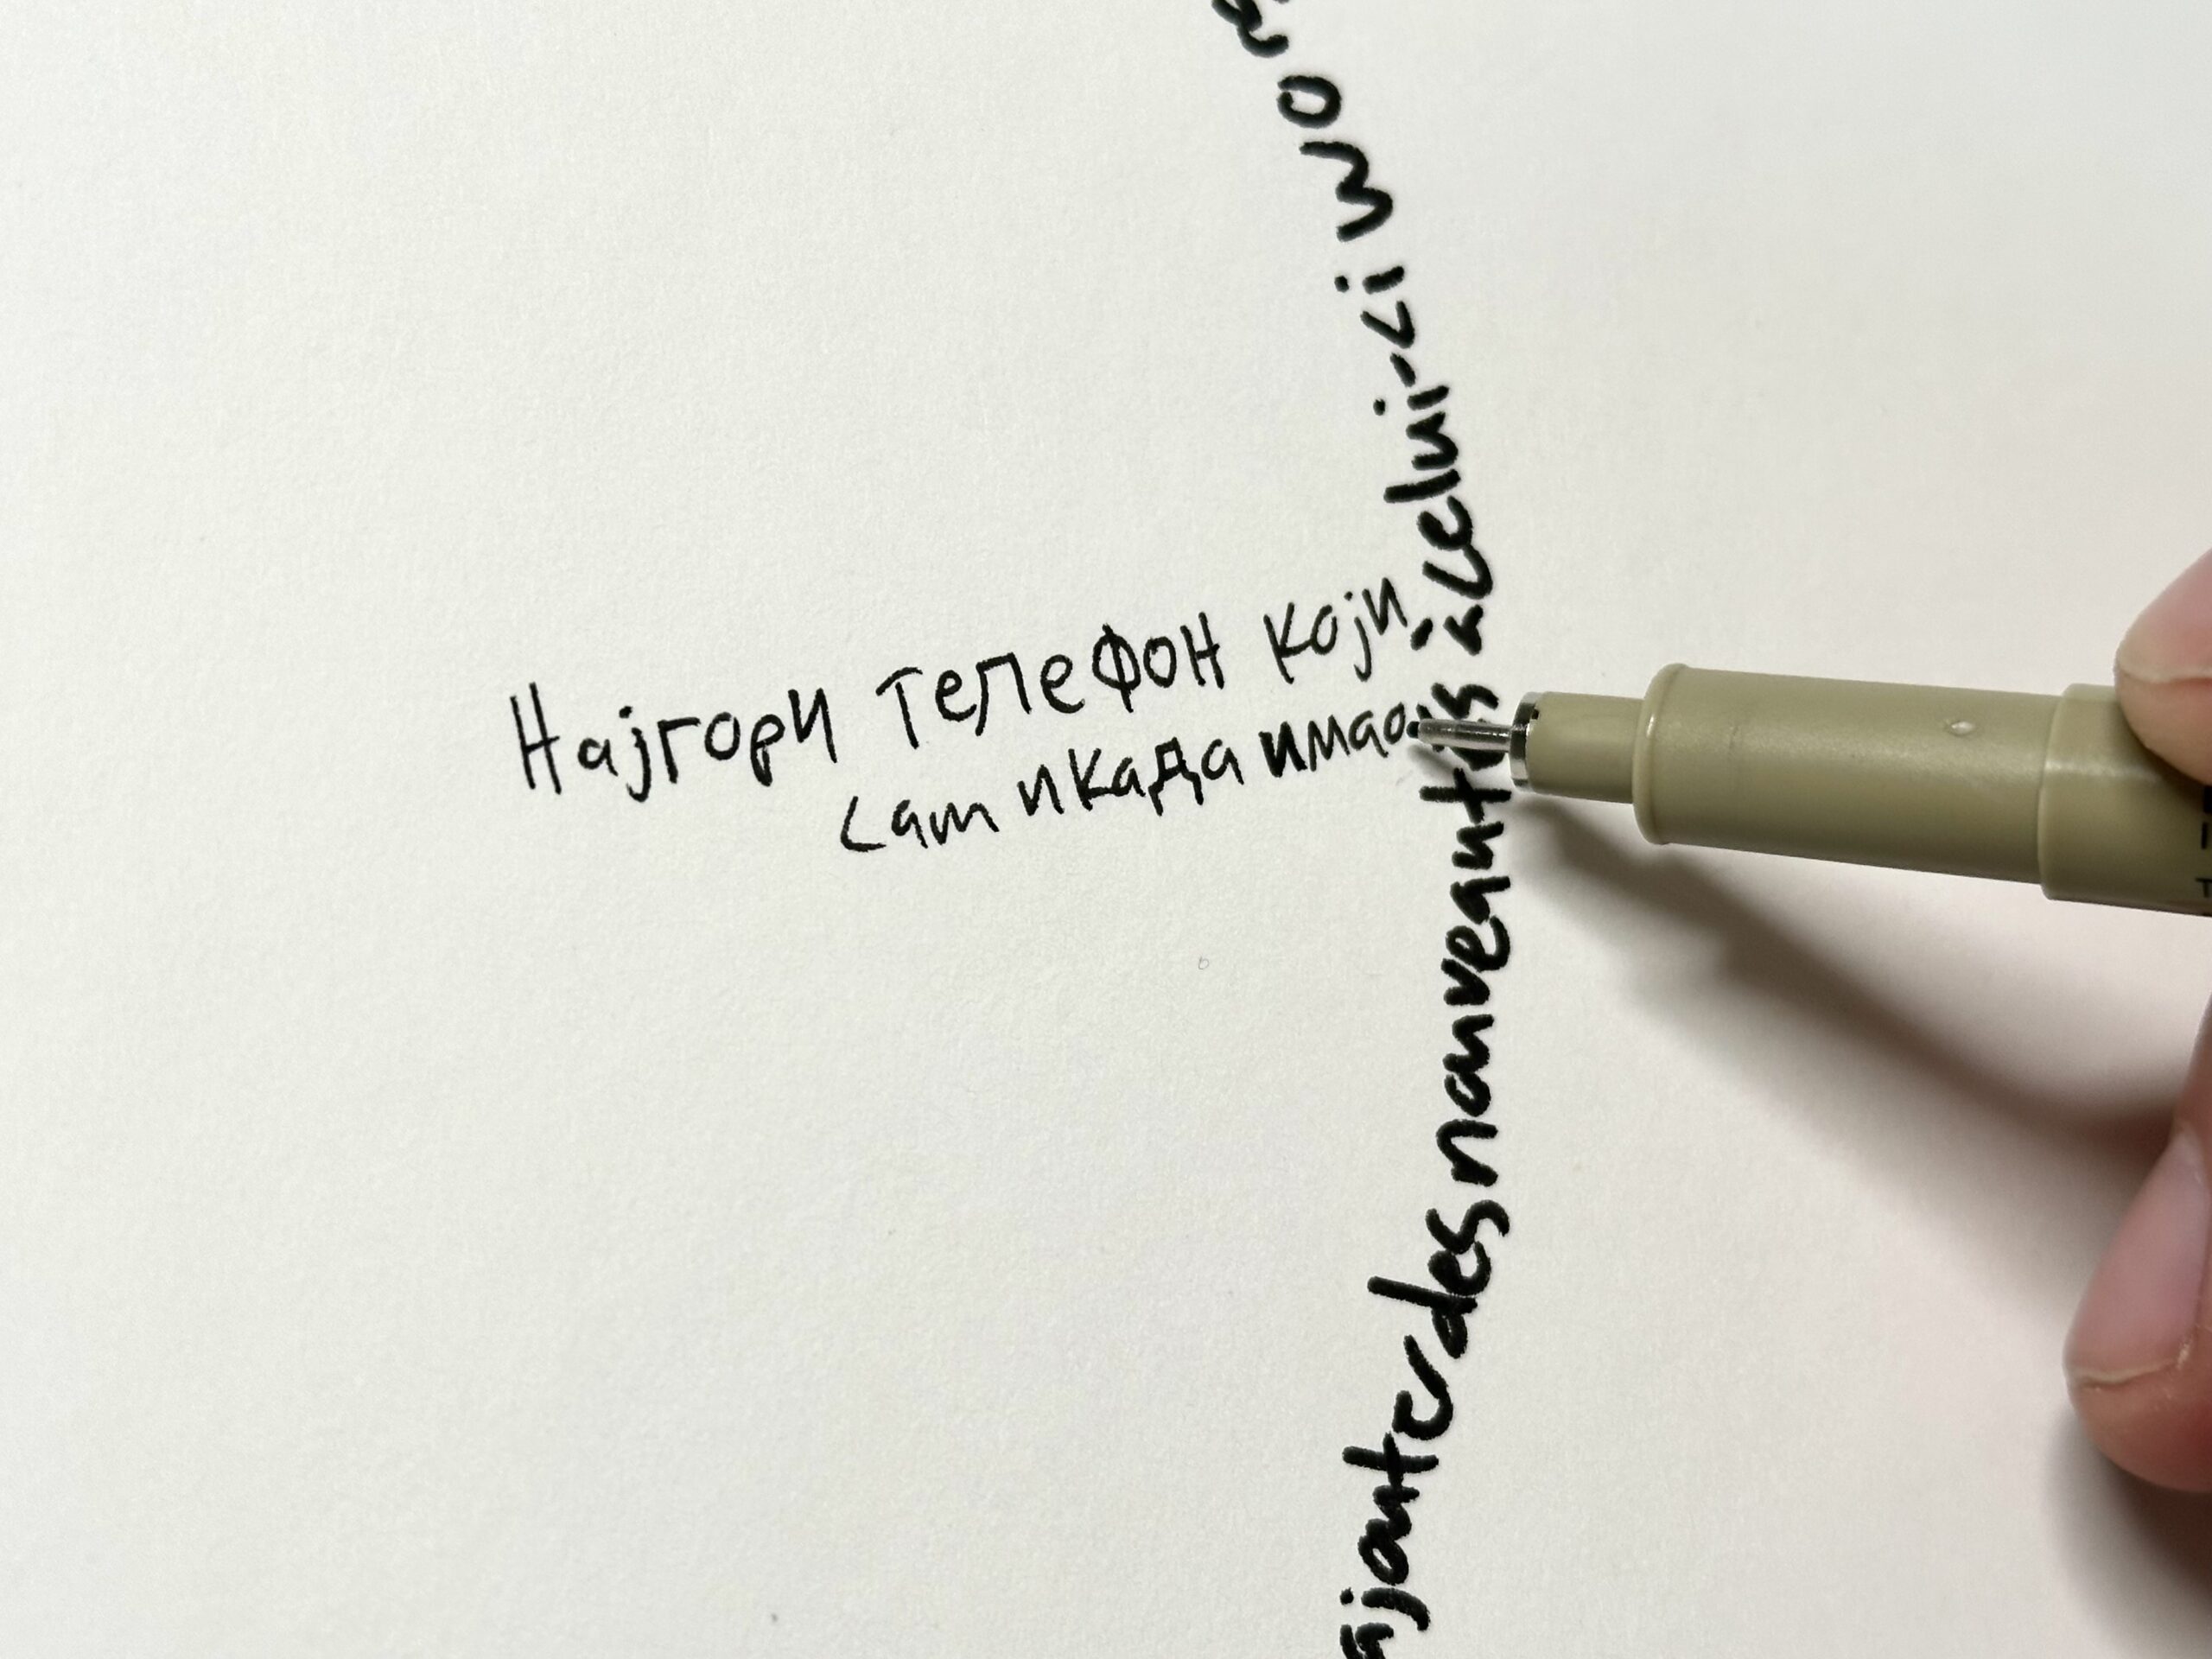 Најгори телефон који
сам икада имао
ajouterdesnouveautés àcelui-ci